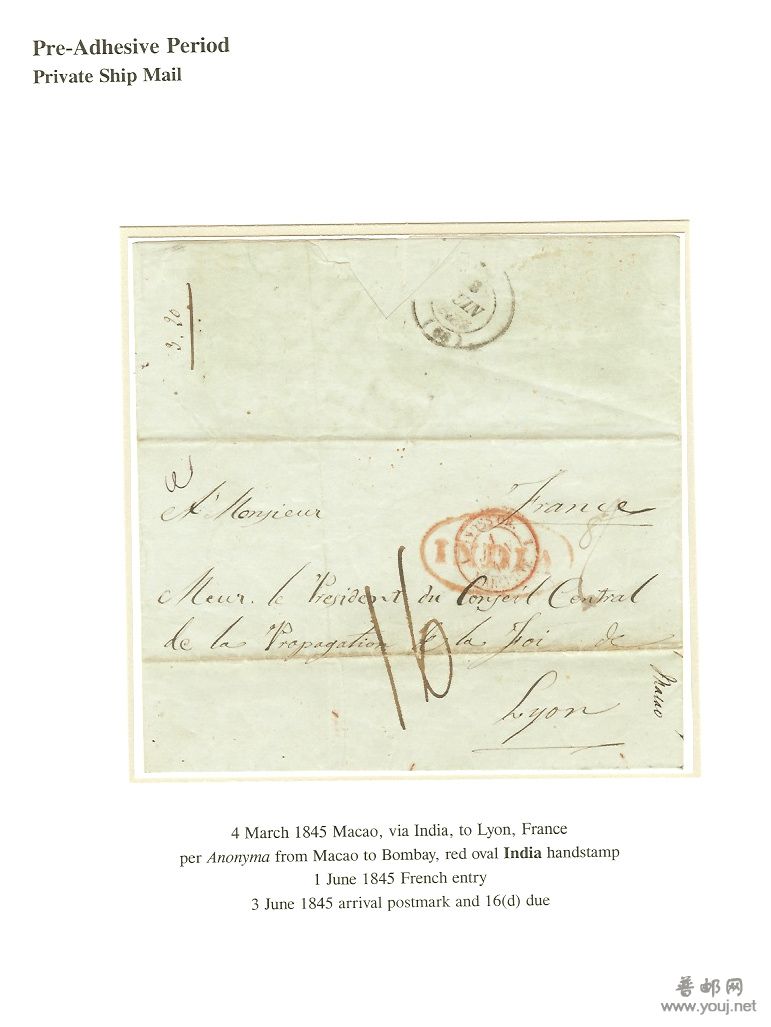 Pre-Adhesive Period
Private Ship Mail
3. 20
3
JUIN
(68)
France
A Monsieur
INDIA
Meur. le President du Conseil Central
de la Propagation de la Foi de
16
Lyon
Macao
4 March 1845 Macao, via India, to Lyon, France
per Anonyma from Macao to Bombay, red oval India handstamp
1 June 1845 French entry
3 June 1845 arrival postmark and 16(d) due
普邮网
www.youj.net